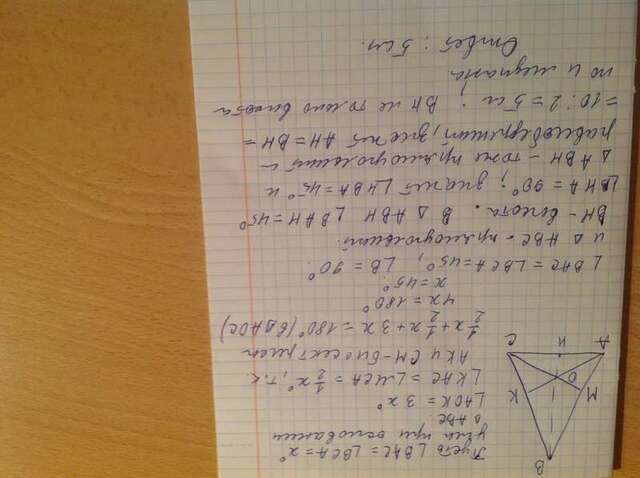 B
M
K
O
A
H
C
Пусть ∠BAC = ∠BCA = x°
углы при основании
△ ABC.
∠AOK = 3x°
∠KAC = ∠MCA = 1/2 x°, т.к.
AK и CM - биссектрисы
1/2 x + 1/2 x + 3x = 180° (в △AOC)
4x = 180°
x = 45°
∠BAC = ∠BCA = 45°, ∠B = 90°
и △ ABC - прямоугольный.
BH - высота. В △ ABH ∠BAH = 45°
∠BHA = 90°; значит ∠HBA = 45° и
△ ABH - тоже прямоугольный и
равнобедренный, значит AH = BH =
= 10 : 2 = 5 см ; BH не только высота
но и медиана
Ответ : 5 см.